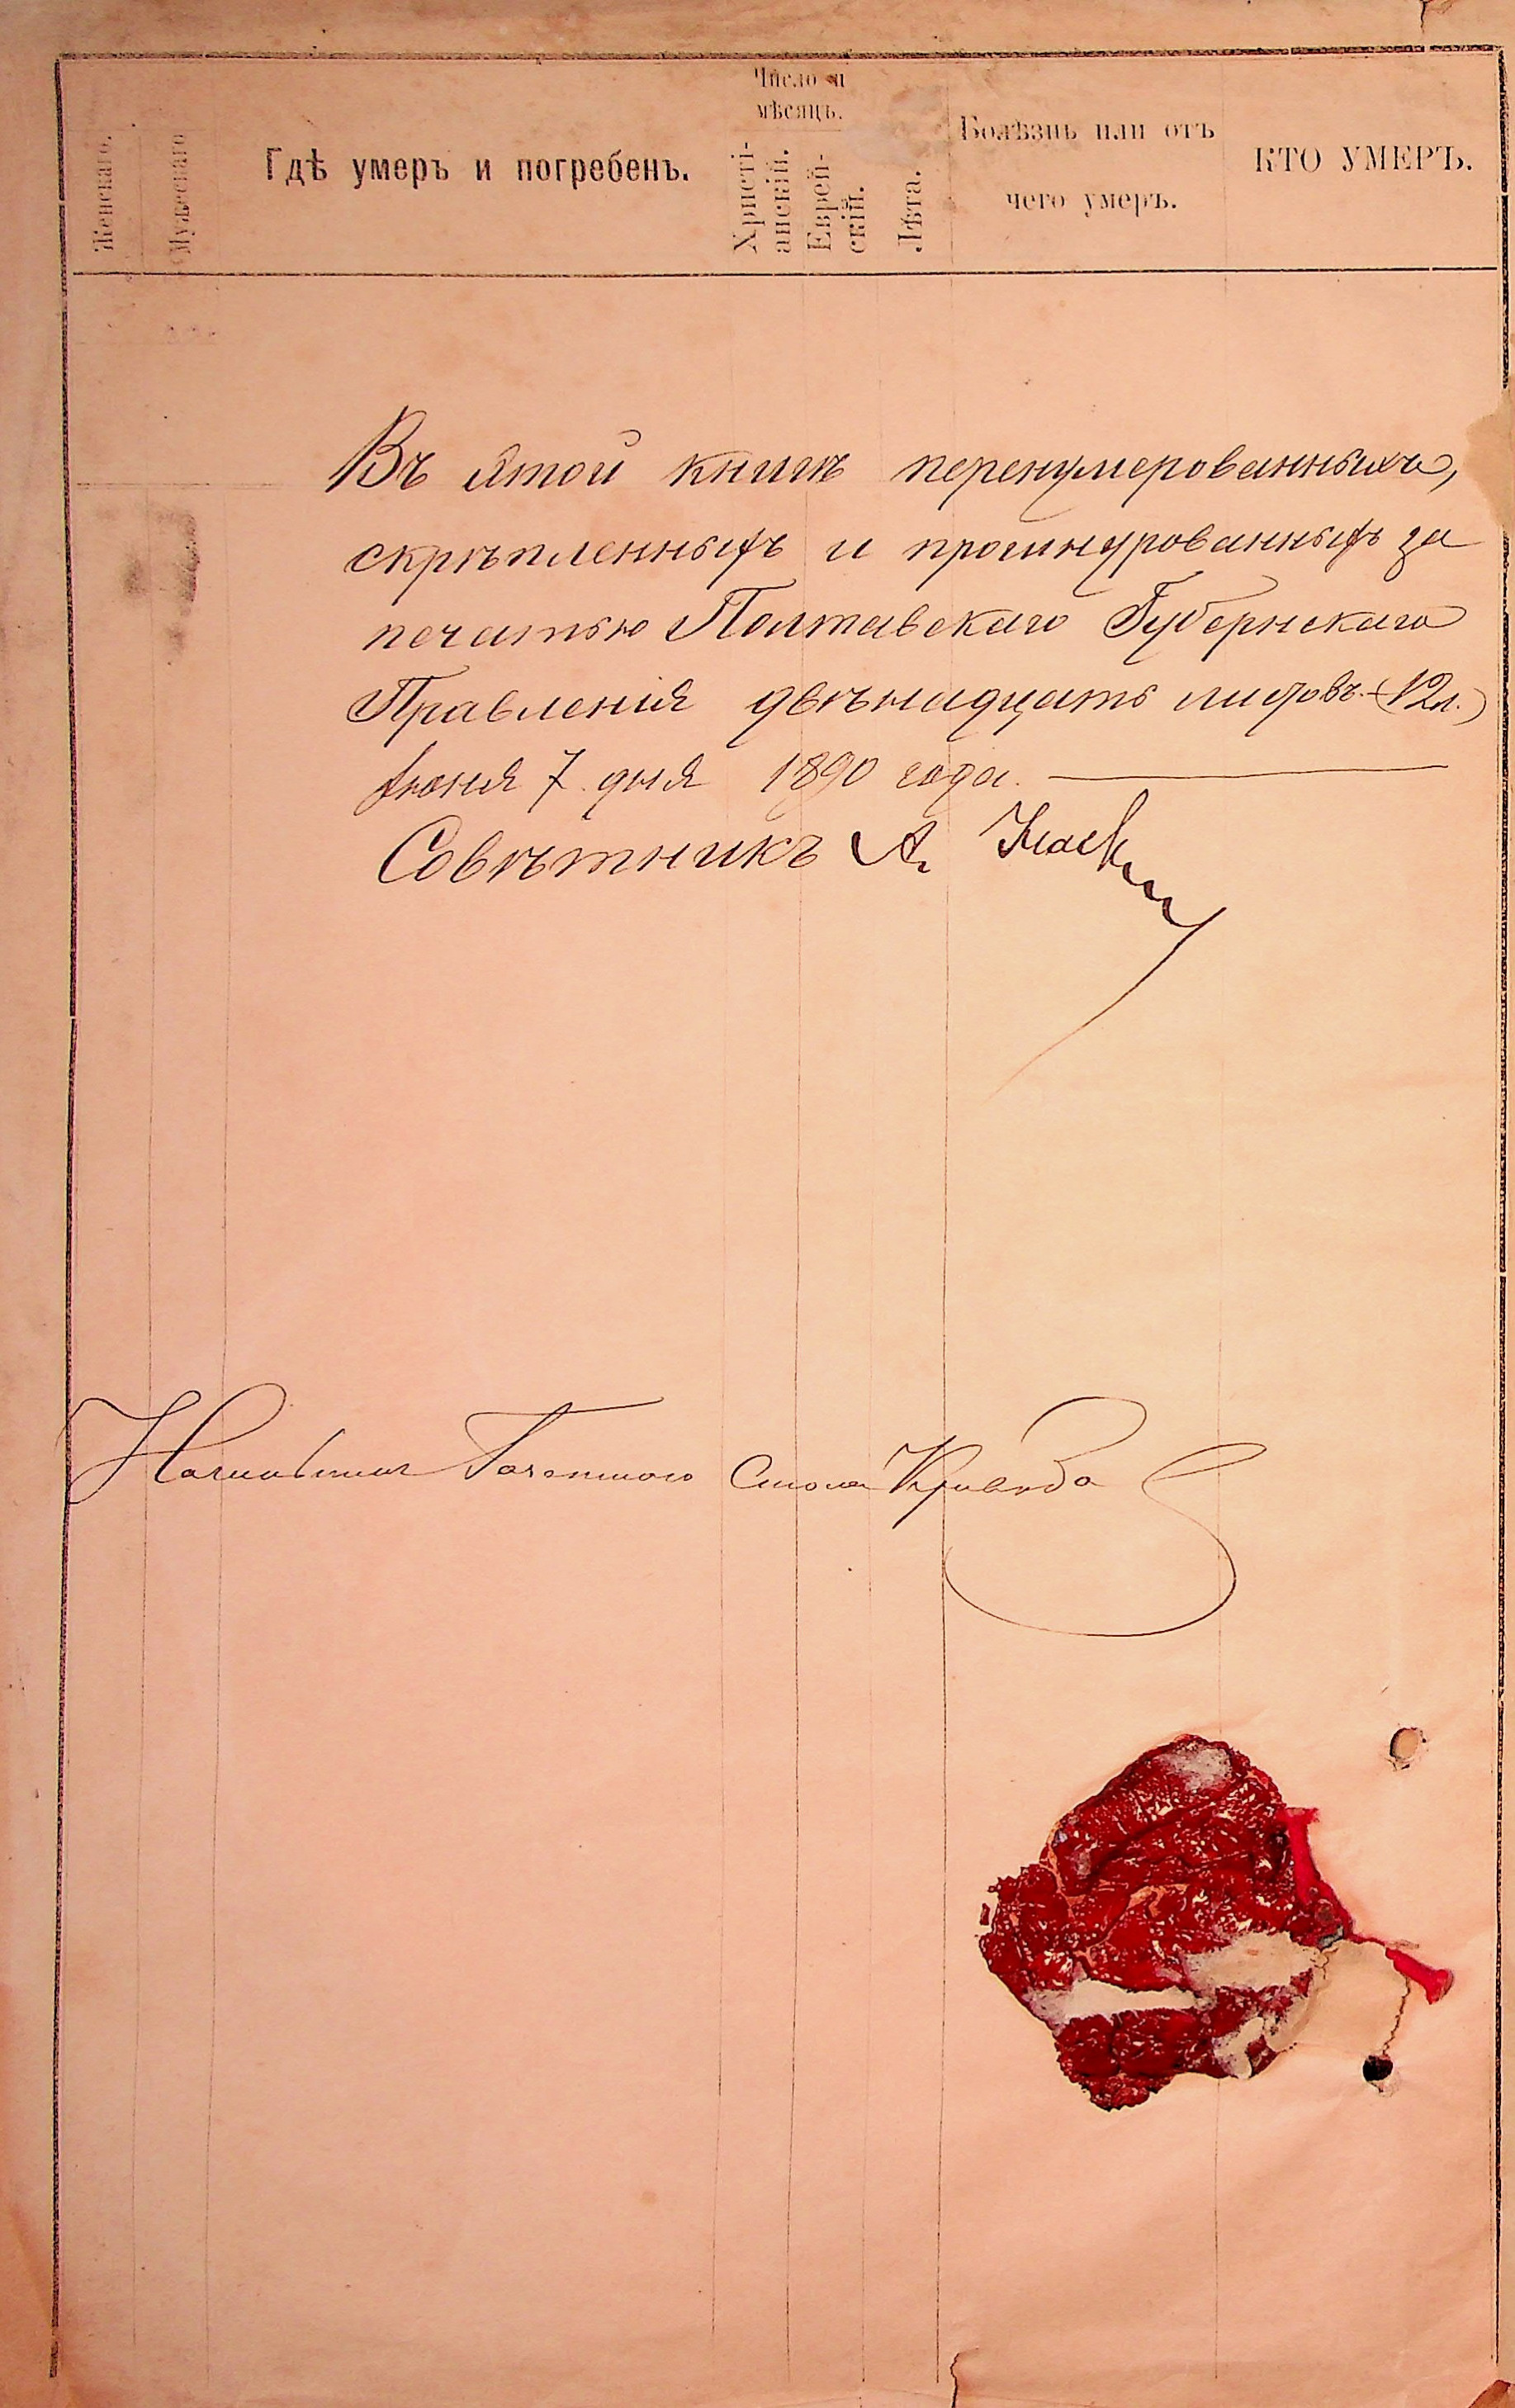 Число и
мѣсяцъ.
Женскаго.
Мужескаго
Гдѣ умеръ и погребенъ.
Христі-
анскій.
Еврей-
скій.
Лѣта.
Болѣзнь или отъ
чего умеръ.
КТО УМЕРЪ.
Въ этой книгѣ перенумерованныхъ,
скрѣпленныхъ и прошнурованныхъ за
печатью Полтавскаго Губернскаго
Правленія двѣнадцать листовъ. (12л.)
Іюня 7 дня 1890 года.
Совѣтникъ А.
Стола